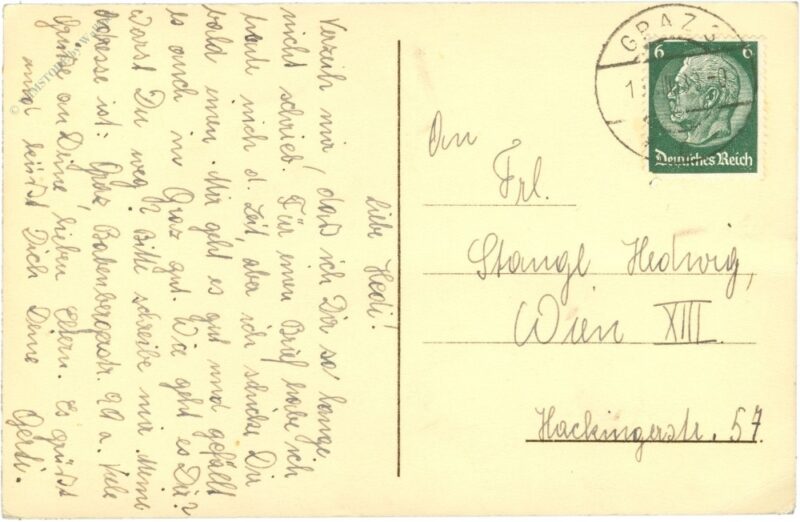 Liebe Hedi!
Verzeih mir, daß ich Dir so lange
nicht schrieb. Für einen Brief habe ich
nicht d. Zeit, aber ich schicke Dir
bald einen. Mir geht es gut und gefällt
es auch in Graz gut. Wie geht es Dir?
Warst Du weg? Bitte schreibe mir. Meine
Adresse ist: Graz Babenbergerstr. a. Viele
Grüße an Deine lieben Eltern. Es grüßt
und küßt Dich Deine Gerti.
GRAZ
6 6
Deutsches Reich
An
Frl.
Stangl Hedwig,
Wien XIII.
Hackingerstr. 57